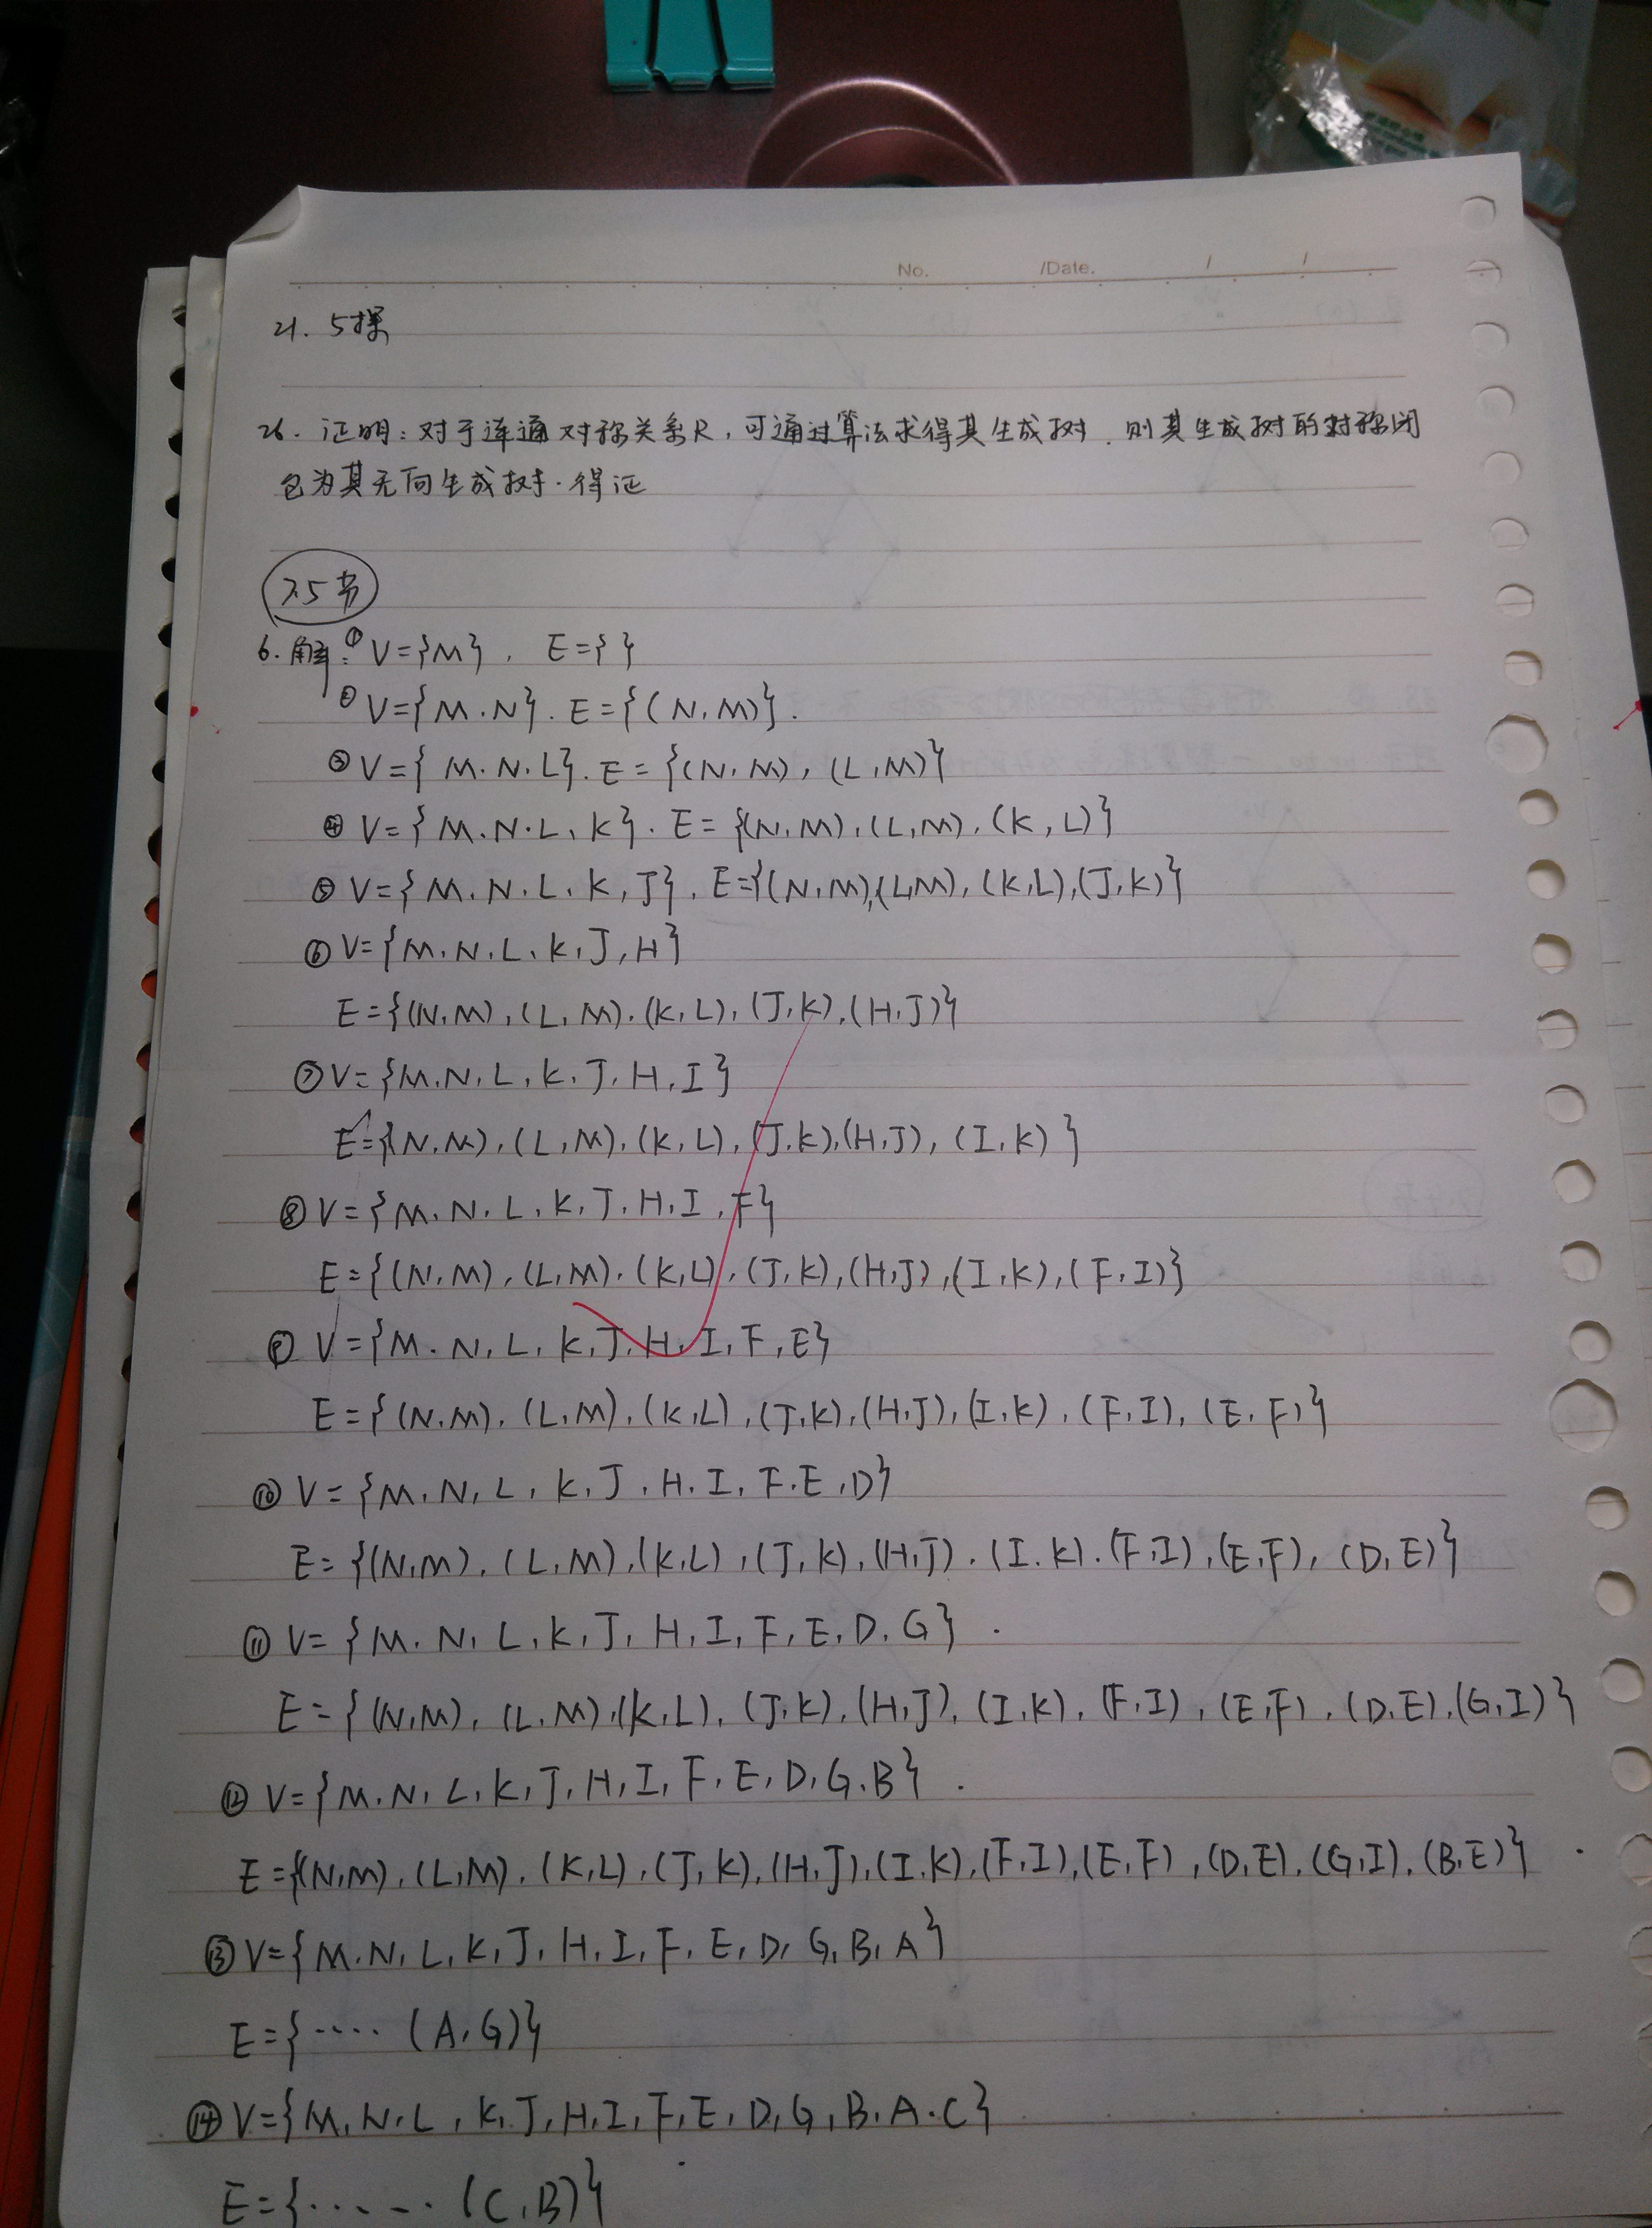 No. /Date. / /
21. 5棵
26. 证明：对于连通对称关系R，可通过算法求得其生成树．则其生成树的对称闭
包为其无向生成树．得证
7.5节
6. 解：① V={M}, E={ }
② V={M.N}. E={(N,M)}.
③ V={M.N.L}. E={(N,M), (L,M)}
④ V={M.N.L.K}. E={(N,M),(L,M),(K,L)}
⑤ V={M.N.L.K,J}, E={(N,M),(L,M),(K,L),(J,K)}
⑥ V={M,N,L,K,J,H}
E={(N,M),(L,M).(K,L),(J,K),(H,J)}
⑦ V={M.N,L,K,J,H,I}
E={(N,M),(L,M),(K,L),(J,K),(H,J),(I,K)}
⑧ V={M.N.L,K,J.H,I,F}
E={(N,M),(L,M).(K,L),(J,K),(H,J),(I,K),(F,I)}
⑨ V={M.N,L,K,J,H,I,F,E}
E={(N,M),(L,M),(K,L),(J,K),(H,J),(I,K),(F,I),(E,F)}
⑩ V={M,N,L,K,J,H,I,F.E,D}
E={(N,M),(L,M),(K,L),(J,K),(H,J).(I.K).(F,I),(E,F),(D,E)}
⑪ V={M,N,L,K,J,H,I,F,E,D,G}.
E={(N,M),(L,M),(K,L),(J,K),(H,J),(I,K),(F,I),(E,F),(D,E),(G,I)}
⑫ V={M.N,L,K,J,H,I,F,E,D,G.B}.
E={(N,M),(L,M),(K,L),(J,K),(H,J),(I,K),(F,I),(E,F),(D,E),(G,I),(B,E)}.
⑬ V={M.N,L,K,J,H,I,F,E,D,G,B,A}
E={···· (A,G)}
⑭ V={M,N,L,K,J,H,I,F,E,D,G,B,A.C}
E={······ (C,B)}